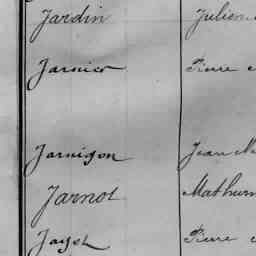 Jardin Julien
Jarnier Pierre
Jarnigon Jean M
Jarnot Mathurin
Jayet Pierre